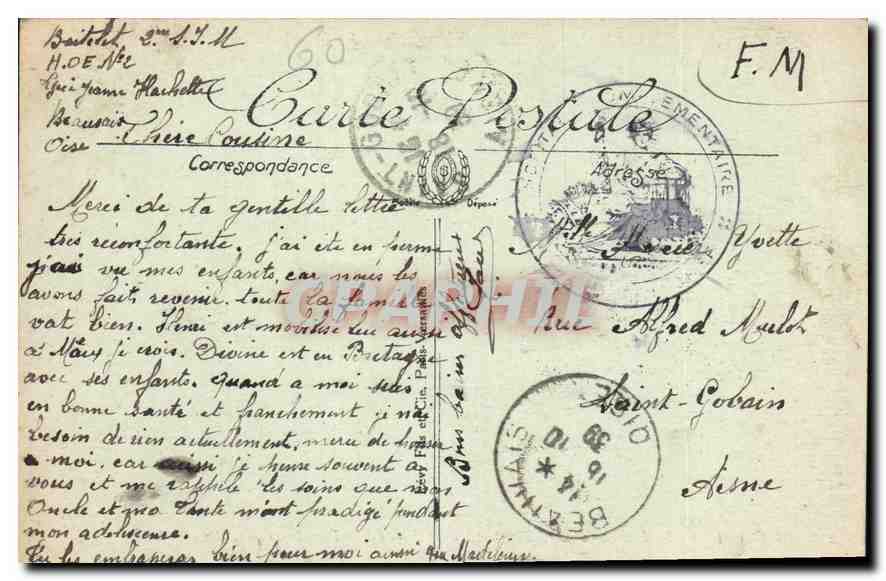 2me S.I.M
H.O.E N°2
Jeanne Hachette
Beauvais
Oise
60
F.M
Carte Postale
Chère Cousine
Correspondance
Adresse
Déposé
Merci de ta gentille lettre
très réconfortante. j'ai été en perme
j'ai vu mes enfants, car nous les
avons fait revenir. toute la famille
vat bien. Henri est mobilisé lui aussi
à je crois. Divine est en Bretagne
avec ses enfants. Quand a moi suis
en bonne santé et franchement je n'ai
besoin de rien actuellement, merci de penser
a moi. car aussi je pense souvent a
vous et me rappelle les soins que mon
Oncle et ma Tante m'ont prodigé pendant
mon adolescence.
Tu les embrasseras bien pour moi ainsi que Madeleine.
Bons baisers affectueux
Lévy Fils et Cie, Paris-Versailles
CPAPHIL
Yvette
Rue Alfred Mulot
Saint-Gobain
Aisne
BEAUVAIS
OISE
14 *
16 10
39